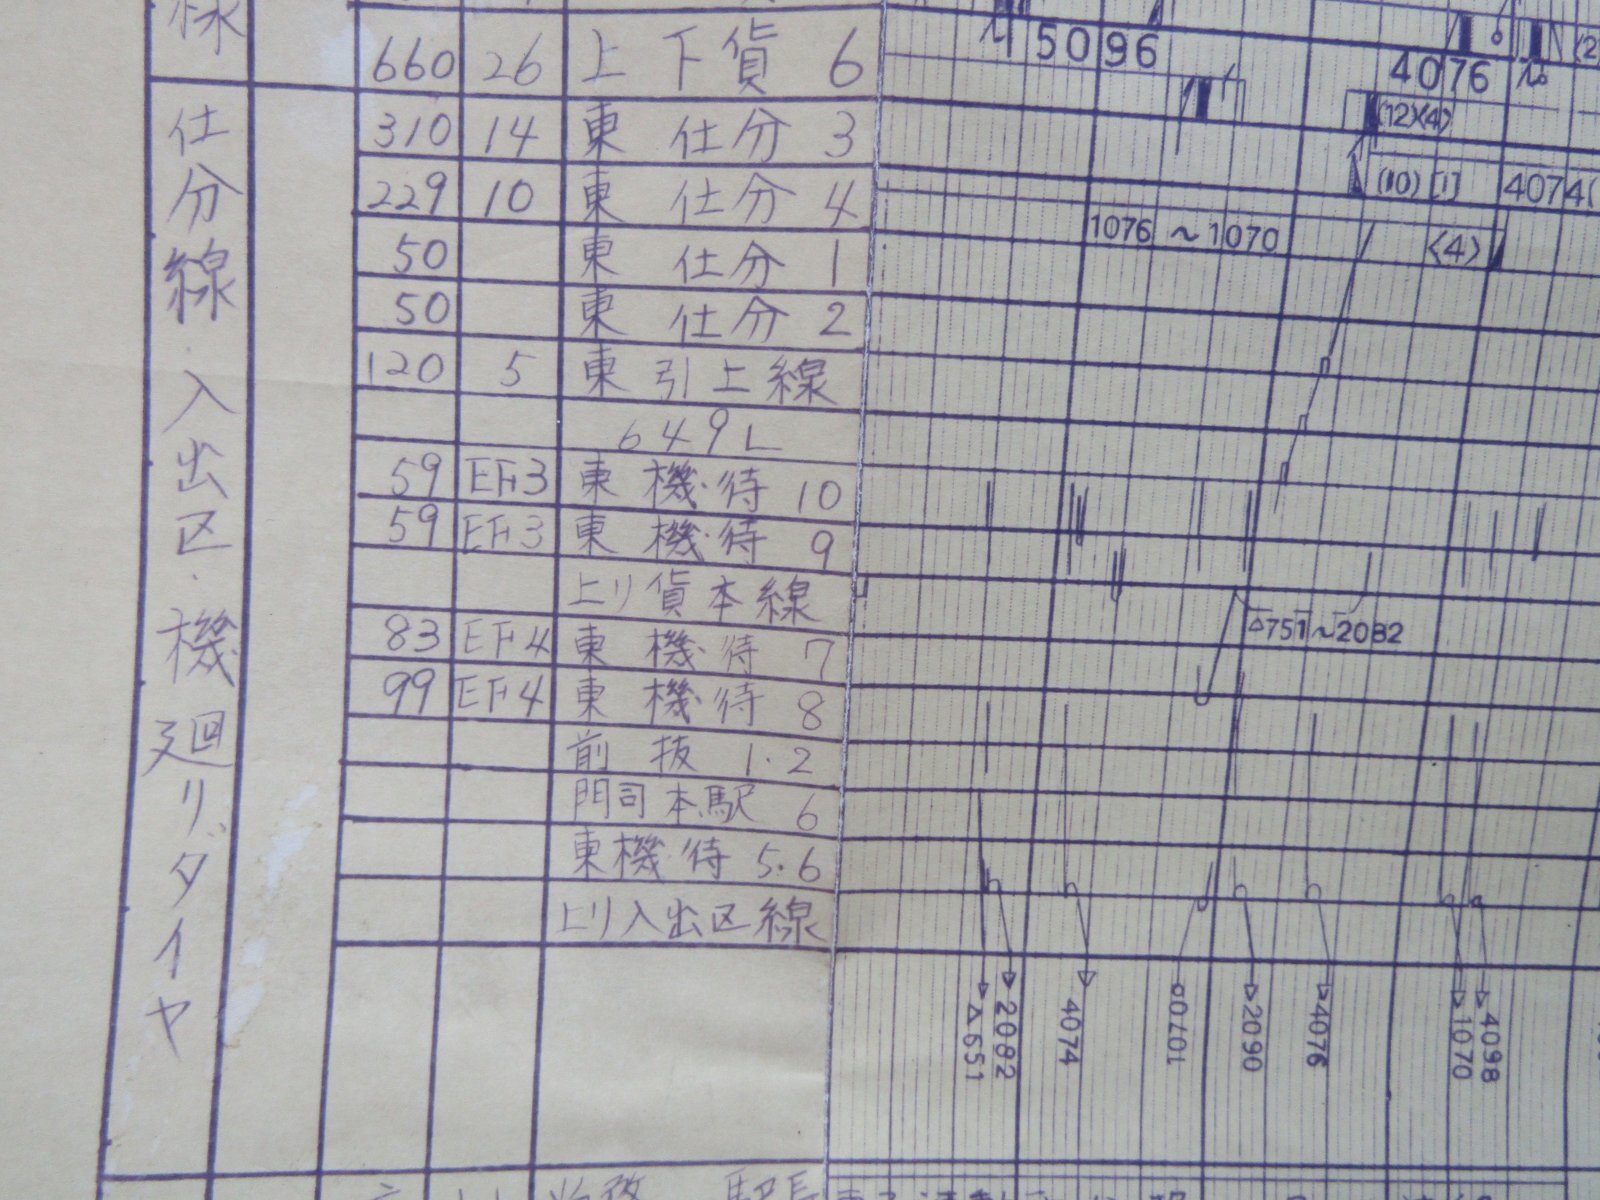 線
仕分線・入出区・機廻りダイヤ
660 26 上下貨 6
310 14 東 仕分 3
229 10 東 仕分 4
50 東 仕分 1
50 東 仕分 2
120 5 東引上線
649L
59 EF3 東 機待 10
59 EF3 東 機待 9
上り貨本線
83 EF4 東 機待 7
99 EF4 東 機待 8
前抜 1.2
門司本駅 6
東機待 5.6
上り入出区線
5096
4076
(2
(12)(4)
(10) [1] 4074(
1076 ～1070
<4>
△751～2082
△651
2082
4074
1070
2090
4076
1070
4098